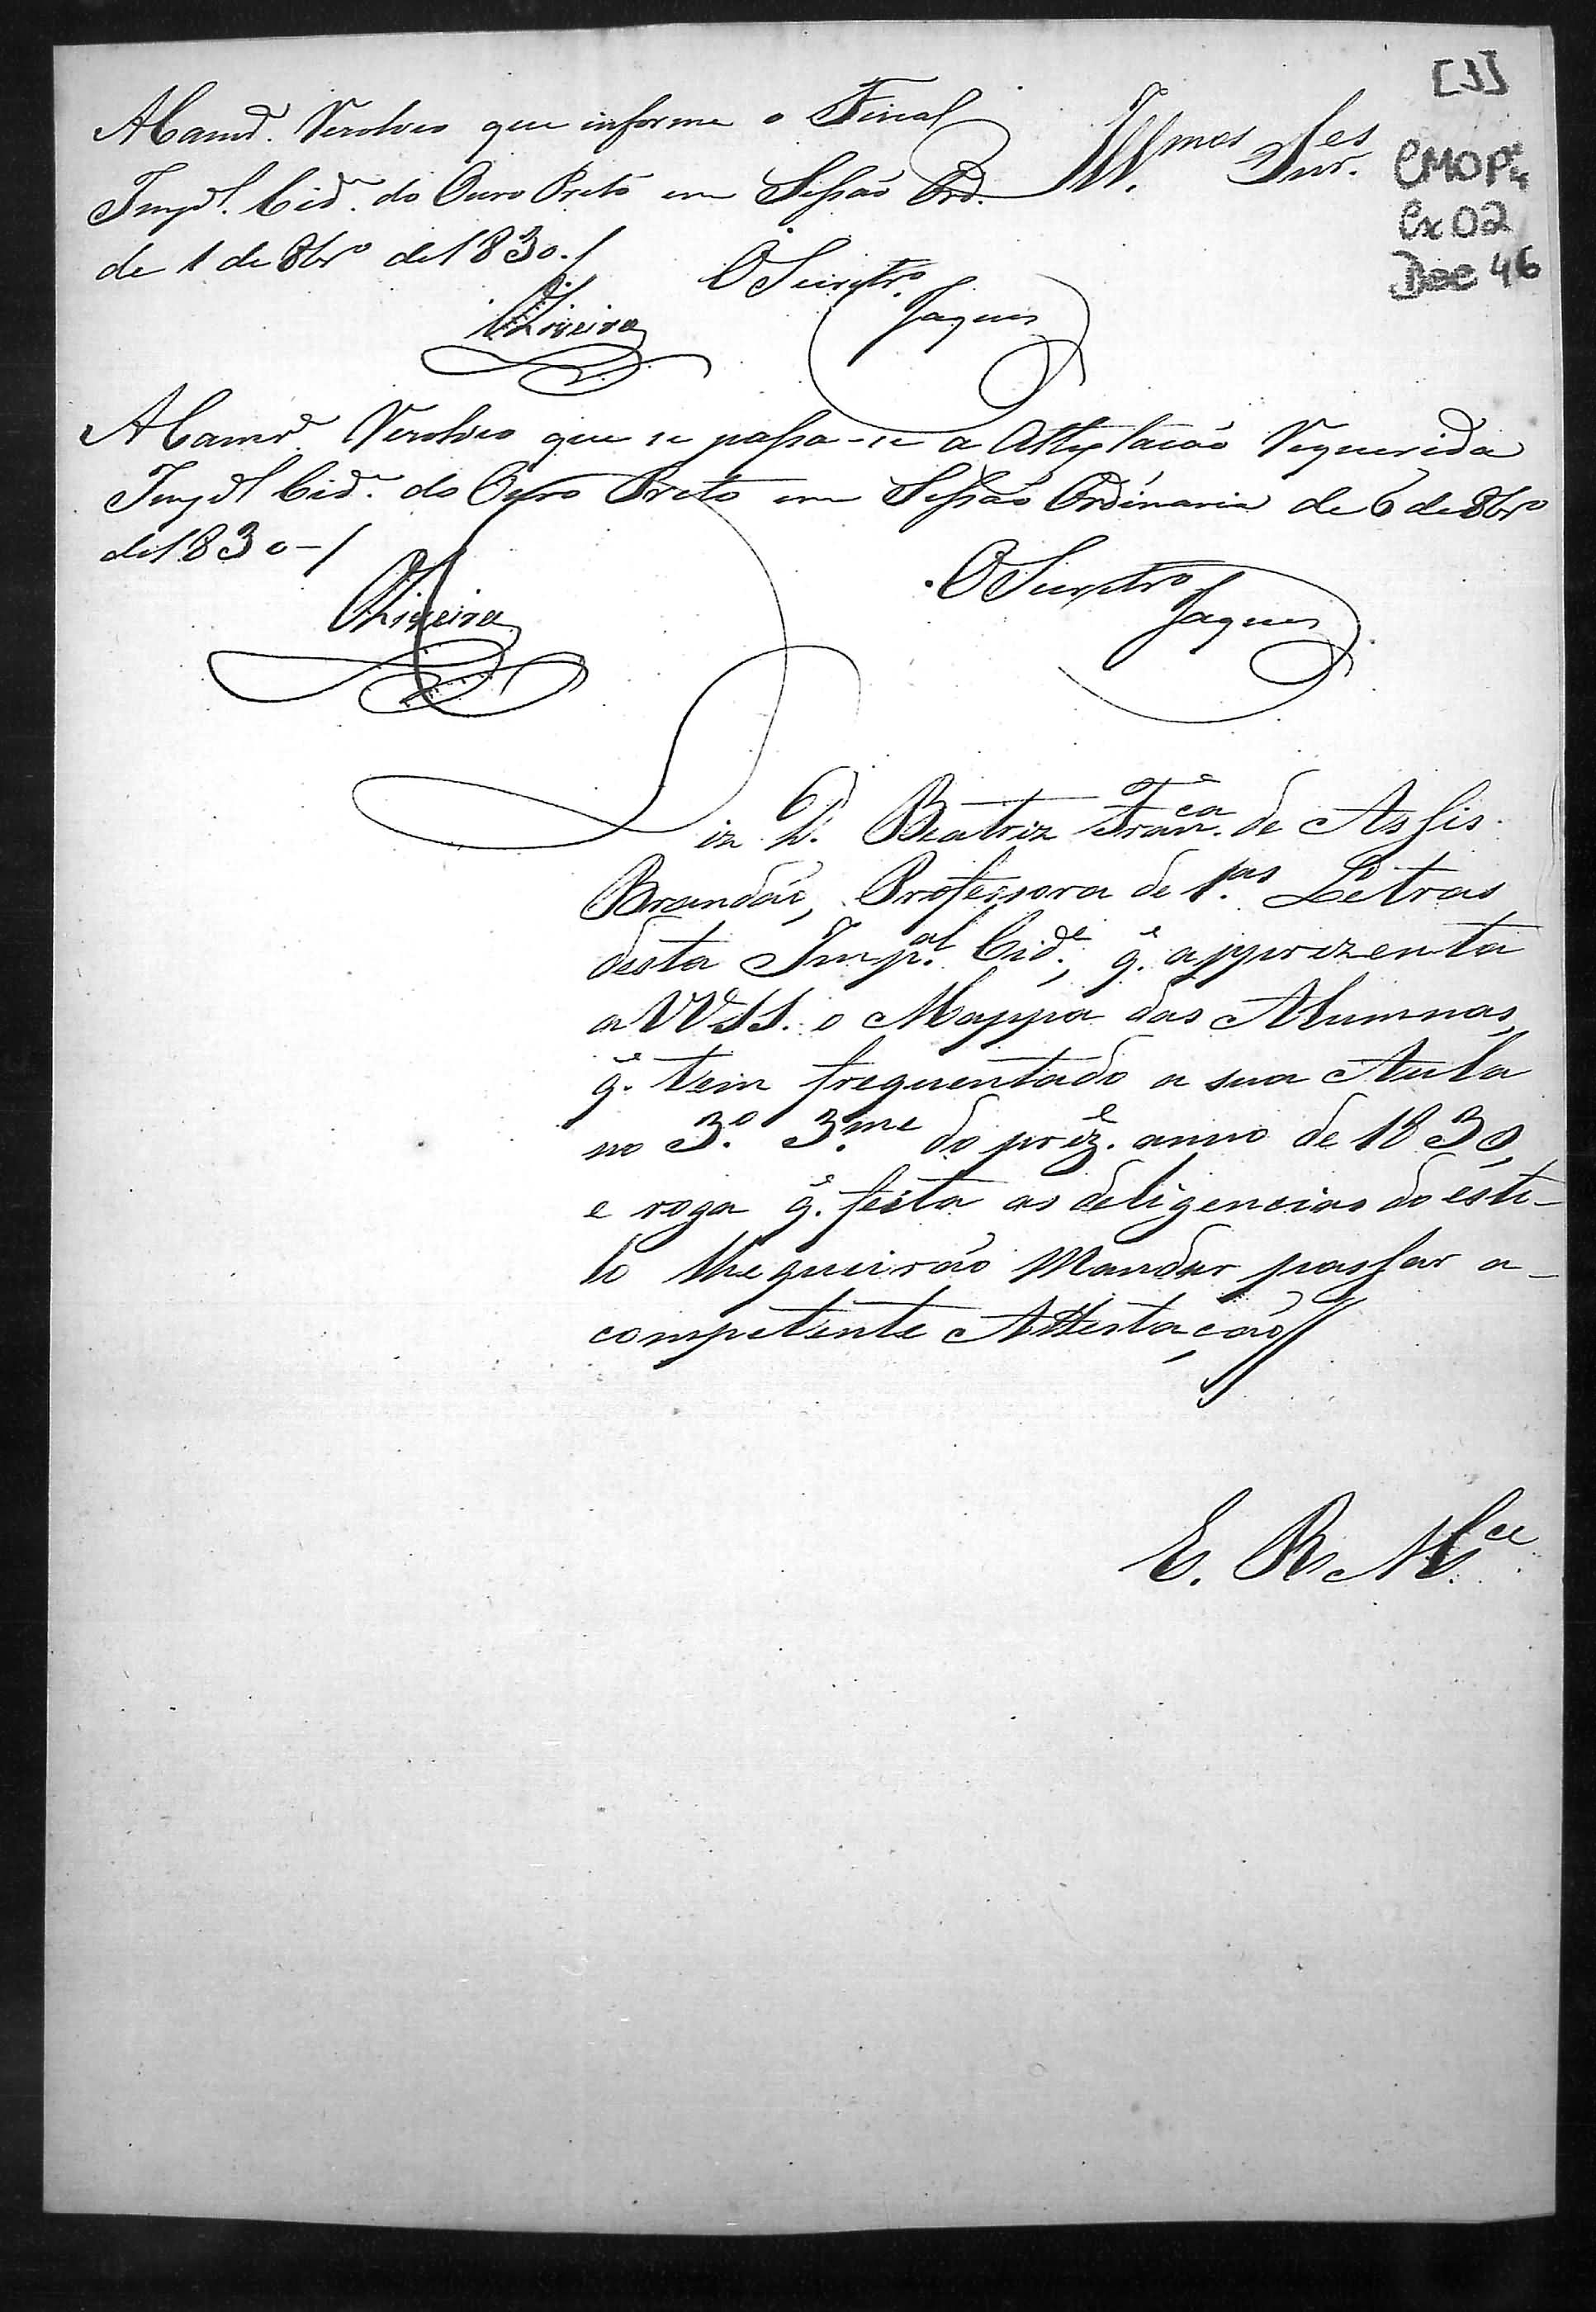 [1]
CMOP
Cx 02
Doc 46
Ill.mos Snr.es
A Camr.ª Resolveo que informe o Fiscal
Imp.al Cid.e do Ouro Preto em Sessão Ord.
de 1 de 8br.o de 1830./
O Secretr.o
Oliveira Jaques
A Camr.ª Resolveo que se passa-se a Attestacão Requerida
Imp.al Cid.e do Ouro Preto em Sessão Ordinaria de 6 de 8br.o
de 1830-/
O Secretr.o
Oliveira Jaques
Diz D. Beatriz Fran.ca de Assis
Brandão, Professora de 1.as Letras
desta Imp.al Cid.e, q.e apprezenta
a VV SS. o Mappa das Alumnas,
q.e tem frequentado a sua Aula
no 3.o 3.me do prez.e anno de 1830,
e roga q.e feita as deligencias do esti-
lo lhe queirão Mandar passar a
competente Attestação//
E. R. M.ce